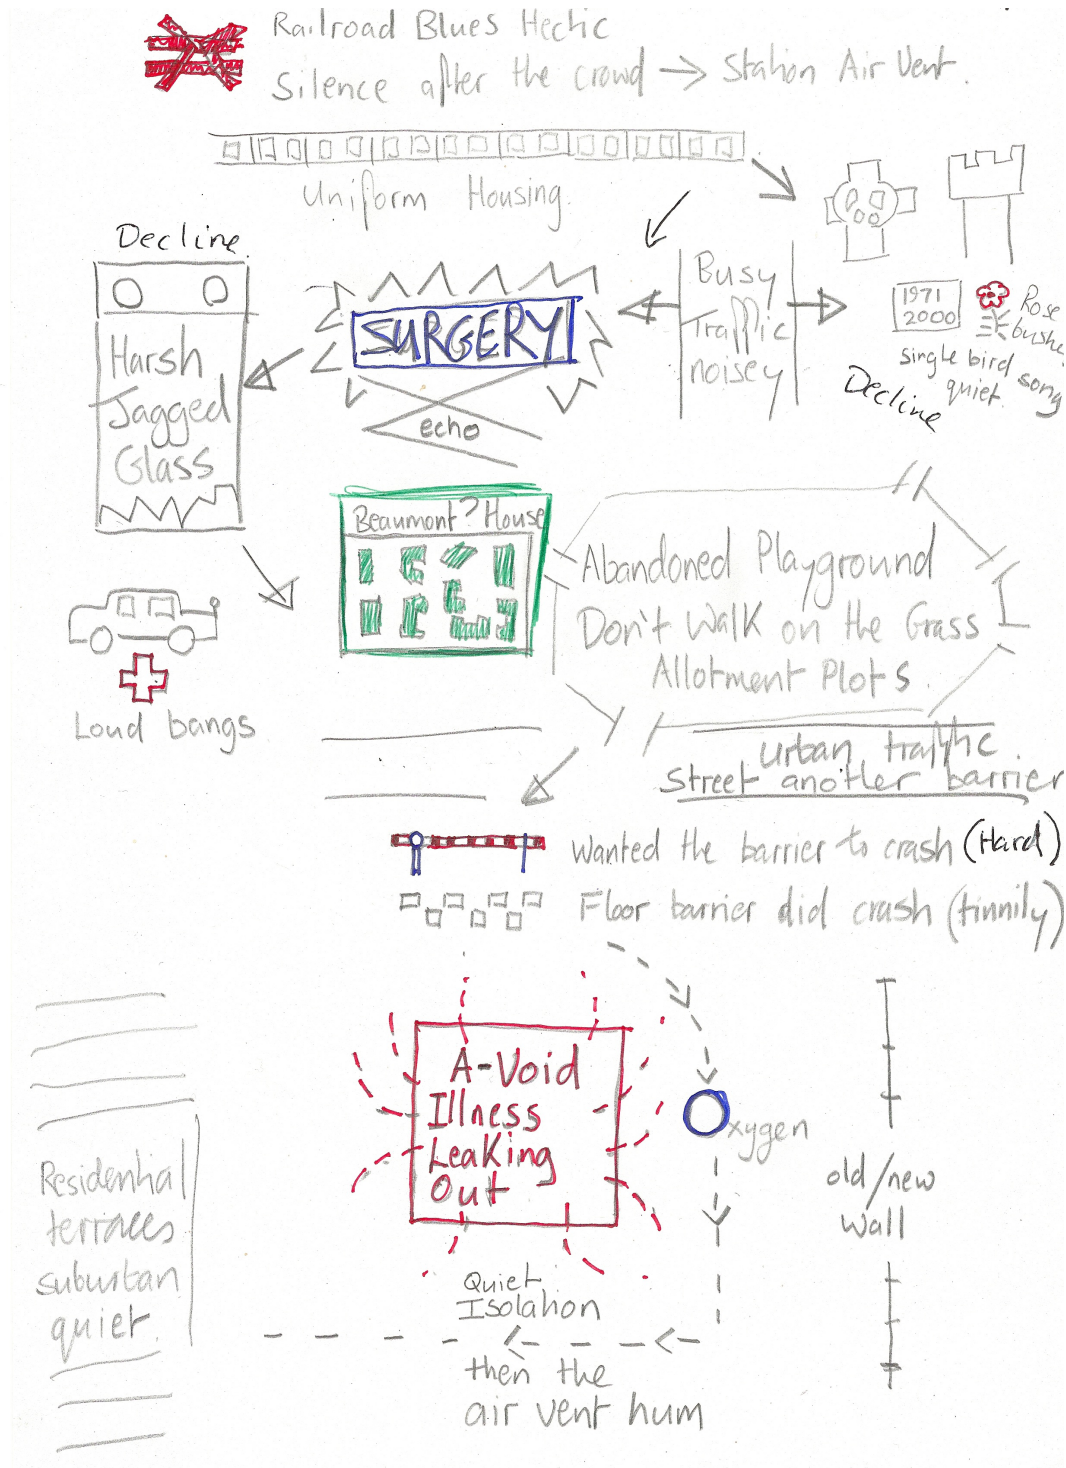 Railroad Blues Hectic
Silence after the crowd → Station Air Vent.
Uniform Housing.
Decline
Harsh
Jagged
Glass
SURGERY
echo
Busy
Traffic
noisey
1971
2000
Rose
bushe
single bird song
quiet.
Decline
Beaumont? House
Abandoned Playground
Don't Walk on the Grass
Allotment Plots.
Loud bangs
urban traffic
Street another barrier
Wanted the barrier to crash (Hard)
Floor barrier did crash (tinnily)
A-Void
Illness
Leaking
Out
Oxygen
old/new
Wall
Residential
terraces
suburban
quiet.
Quiet
Isolation
then the
air vent hum